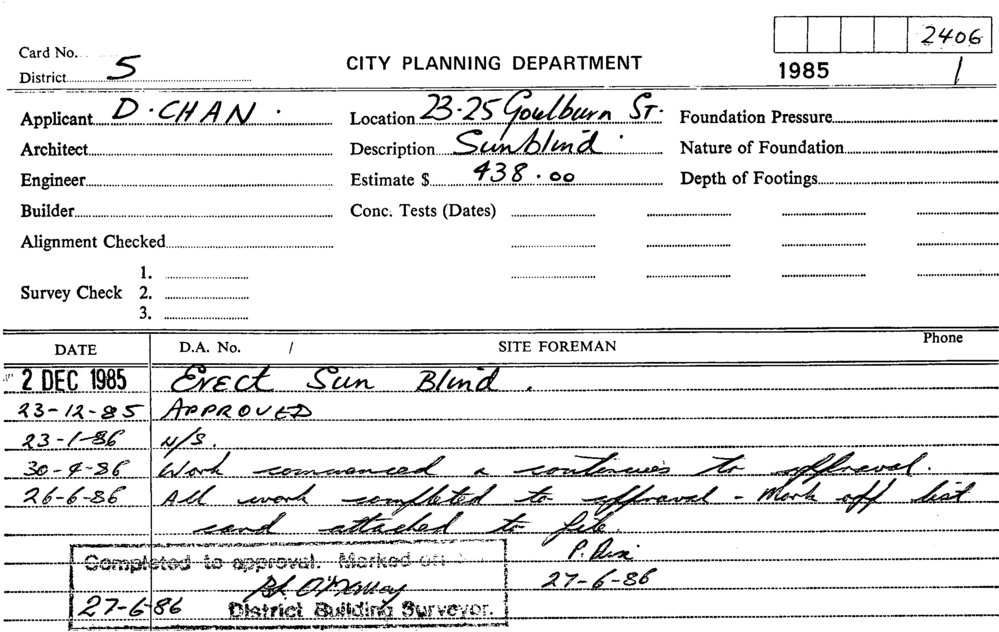 2406
Card No.
District 5
CITY PLANNING DEPARTMENT
1985 /1
Applicant D. CHAN. Location 23-25 Goulburn St. Foundation Pressure
Architect Description Sunblind. Nature of Foundation
Engineer Estimate $ 438.00 Depth of Footings
Builder Conc. Tests (Dates)
Alignment Checked
1.
Survey Check 2.
3.
DATE D.A. No. / SITE FOREMAN Phone
2 DEC 1985 Erect Sun Blind.
23-12-85 APPROVED
23-1-86 N/S.
30-4-86 Work commenced & continues to approval.
26-6-86 All work completed to approval - Mark off list
card attached to file
P.
27-6-86
Completed to approval. Marked off
27-6-86 District Building Surveyor.